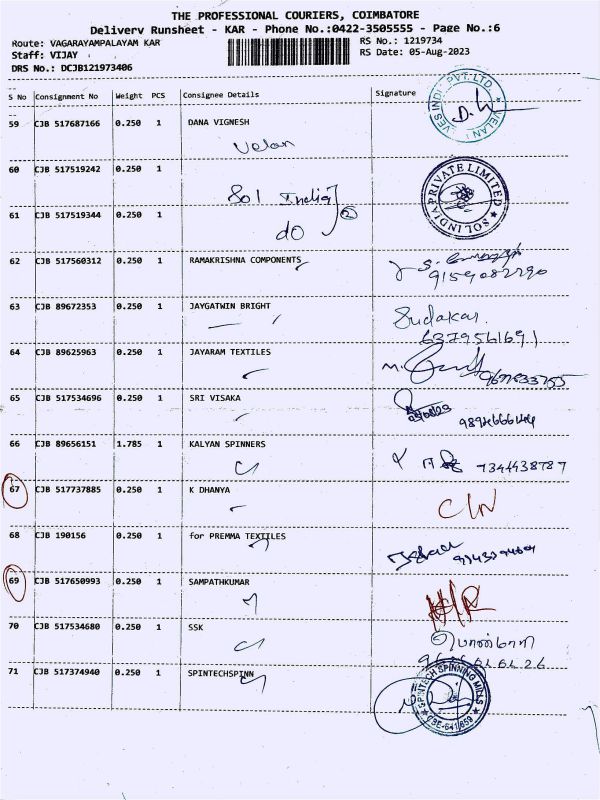 THE PROFESSIONAL COURIERS, COIMBATORE
Delivery Runsheet - KAR - Phone No.:0422-3505555 - Page No.:6
Route: VAGARAYAMPALAYAM KAR
RS No.: 1219734
Staff: VIJAY
RS Date: 05-Aug-2023
DRS No.: DCJB121973406
S No Consignment No Weight PCS Consignee Details Signature
59 CJB 517687166 0.250 1 DANA VIGNESH
Velan
60 CJB 517519242 0.250 1
Sol India
SOL INDIA PRIVATE LIMITED
61 CJB 517519344 0.250 1
do
62 CJB 517560312 0.250 1 RAMAKRISHNA COMPONENTS
9159082290
63 CJB 89672353 0.250 1 JAYGATWIN BRIGHT
Sudakar
6379561691
64 CJB 89625963 0.250 1 JAYARAM TEXTILES
65 CJB 517534696 0.250 1 SRI VISAKA
66 CJB 89656151 1.785 1 KALYAN SPINNERS
7344438787
67 CJB 517737885 0.250 1 K DHANYA
68 CJB 190156 0.250 1 for PREMMA TEXTILES
69 CJB 517650993 0.250 1 SAMPATHKUMAR
70 CJB 517534680 0.250 1 SSK
71 CJB 517374940 0.250 1 SPINTECHSPINN
SPINTECH SPINNING MILLS
CBE-641 659